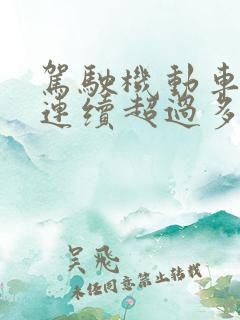 駕駛機動車
連續超過多
吳飛
未經同意禁止轉載